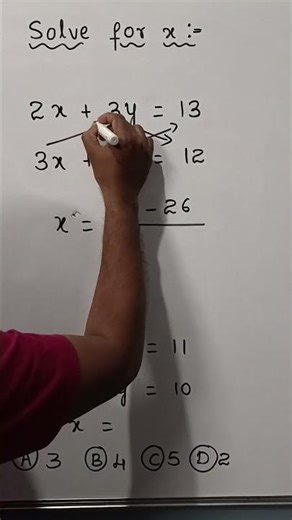 Solve for x :-
2x + 3y = 13
3x + = 12
x = - 26
= 11
y = 10
x =
Ⓐ 3 Ⓑ 4 Ⓒ 5 Ⓓ 2